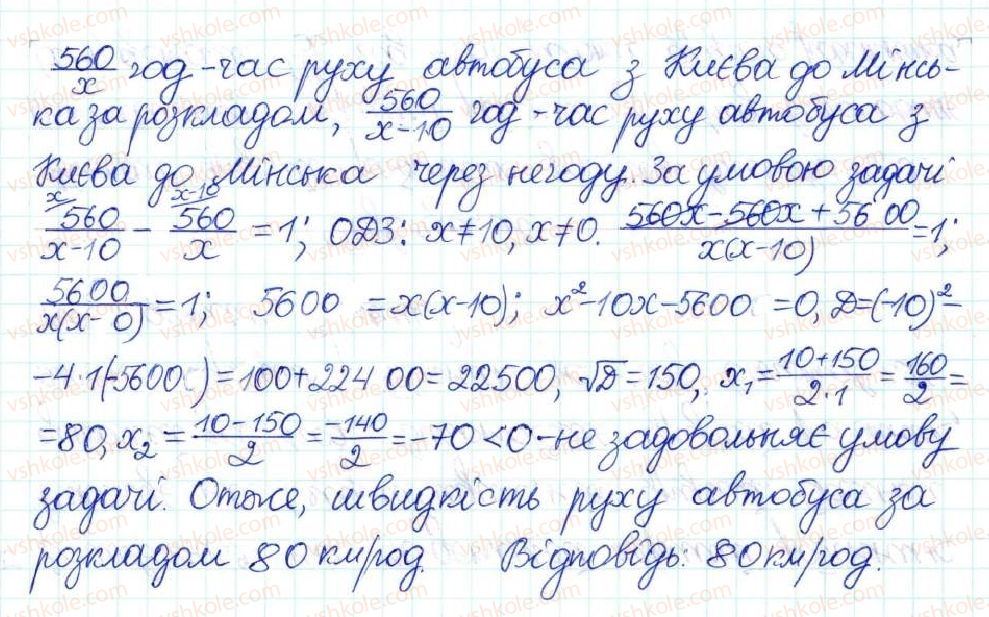 560/x год - час руху автобуса з Києва до Мінсь-
ка за розкладом, 560/(x-10) год - час руху автобуса з
Києва до Мінська через негоду. За умовою задачі
x/ 560/(x-10) - x-10/ 560/x = 1; ОДЗ: x≠10, x≠0. (560x-560x+5600)/(x(x-10)) = 1;
5600/(x(x- 0)) = 1; 5600 = x(x-10); x²-10x-5600 = 0, D=(-10)²-
-4·1(-5600)=100+22400=22500, √D=150, x₁=(10+150)/(2·1)=160/2=
=80, x₂=(10-150)/2=-140/2=-70<0-не задовольняє умову
задачі. Отже, швидкість руху автобуса за
розкладом 80 км/год. Відповідь: 80 км/год.